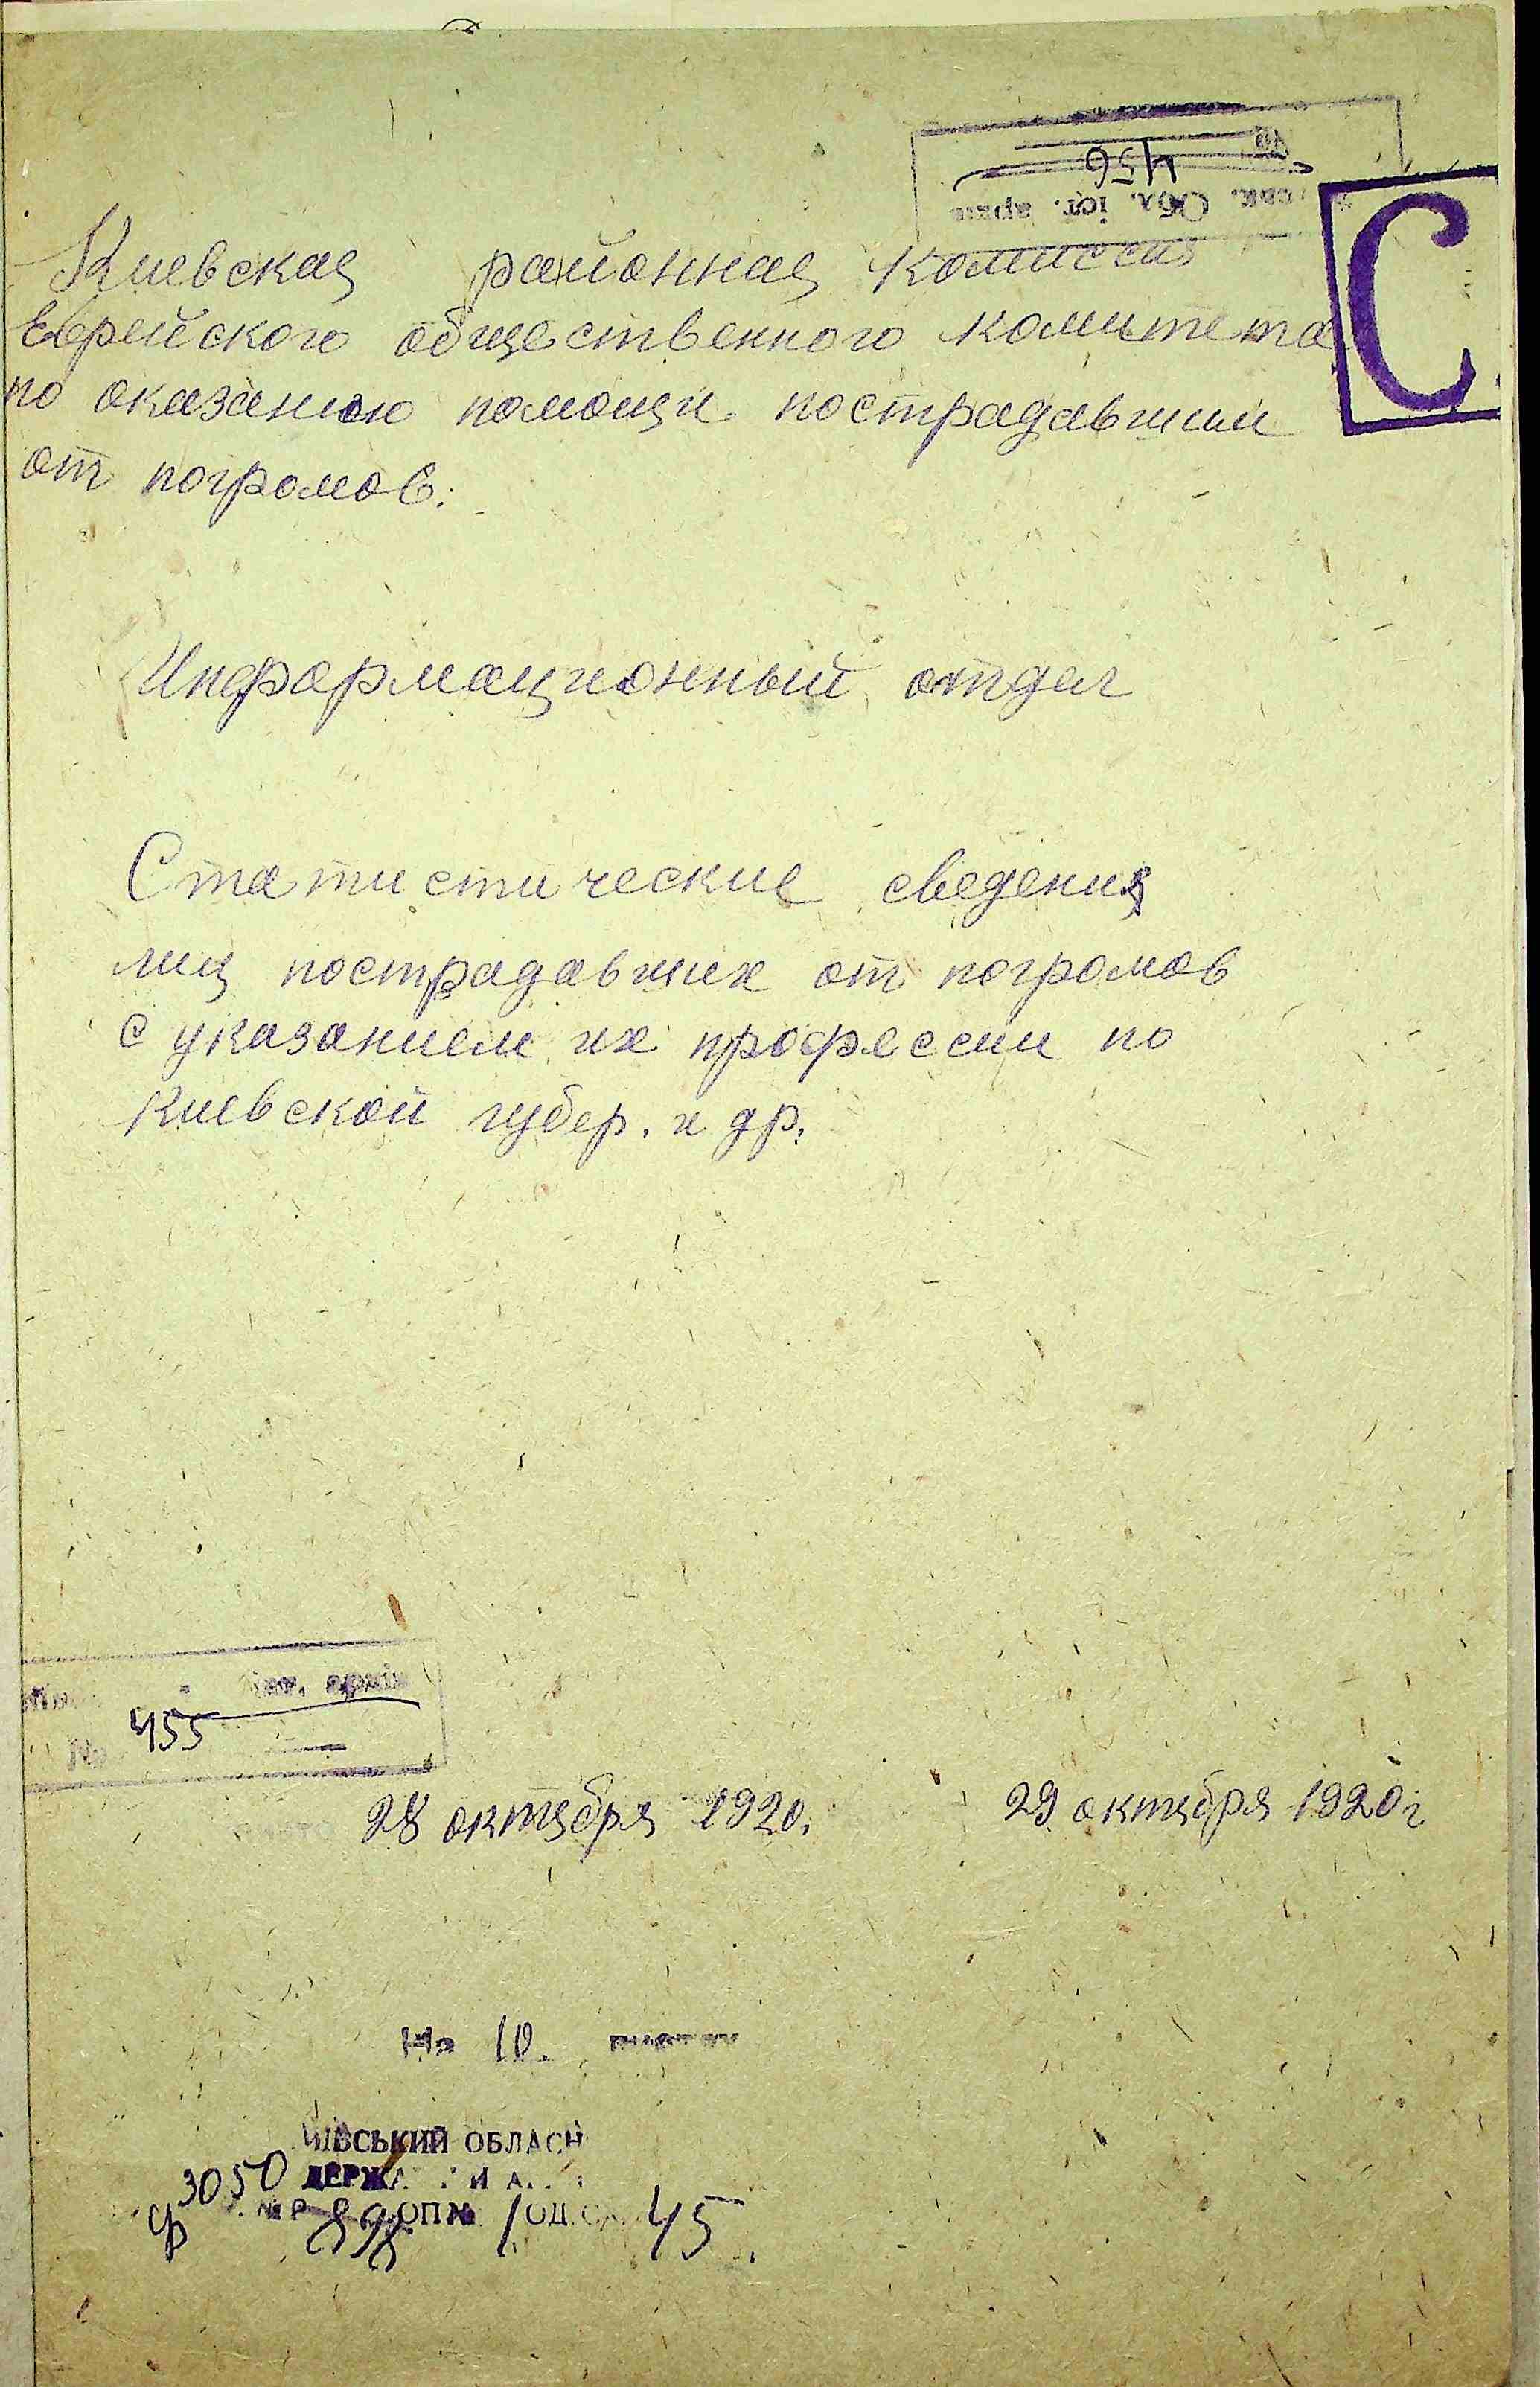 456
обл. іст. архів
С
Киевская районная комиссия
Еврейского общественного комитета
по оказанию помощи пострадавшим
от погромов.
Информационный отдел
Статистические сведения
лиц пострадавших от погромов
с указанием их профессии по
Киевской губер. и др.
іст. архів
№ 455
28 октября 1920. 29 октября 1920 г
На 10.
ОБЛАСН
3050
ф № Р 898 ОП № 1 ОД. 45.